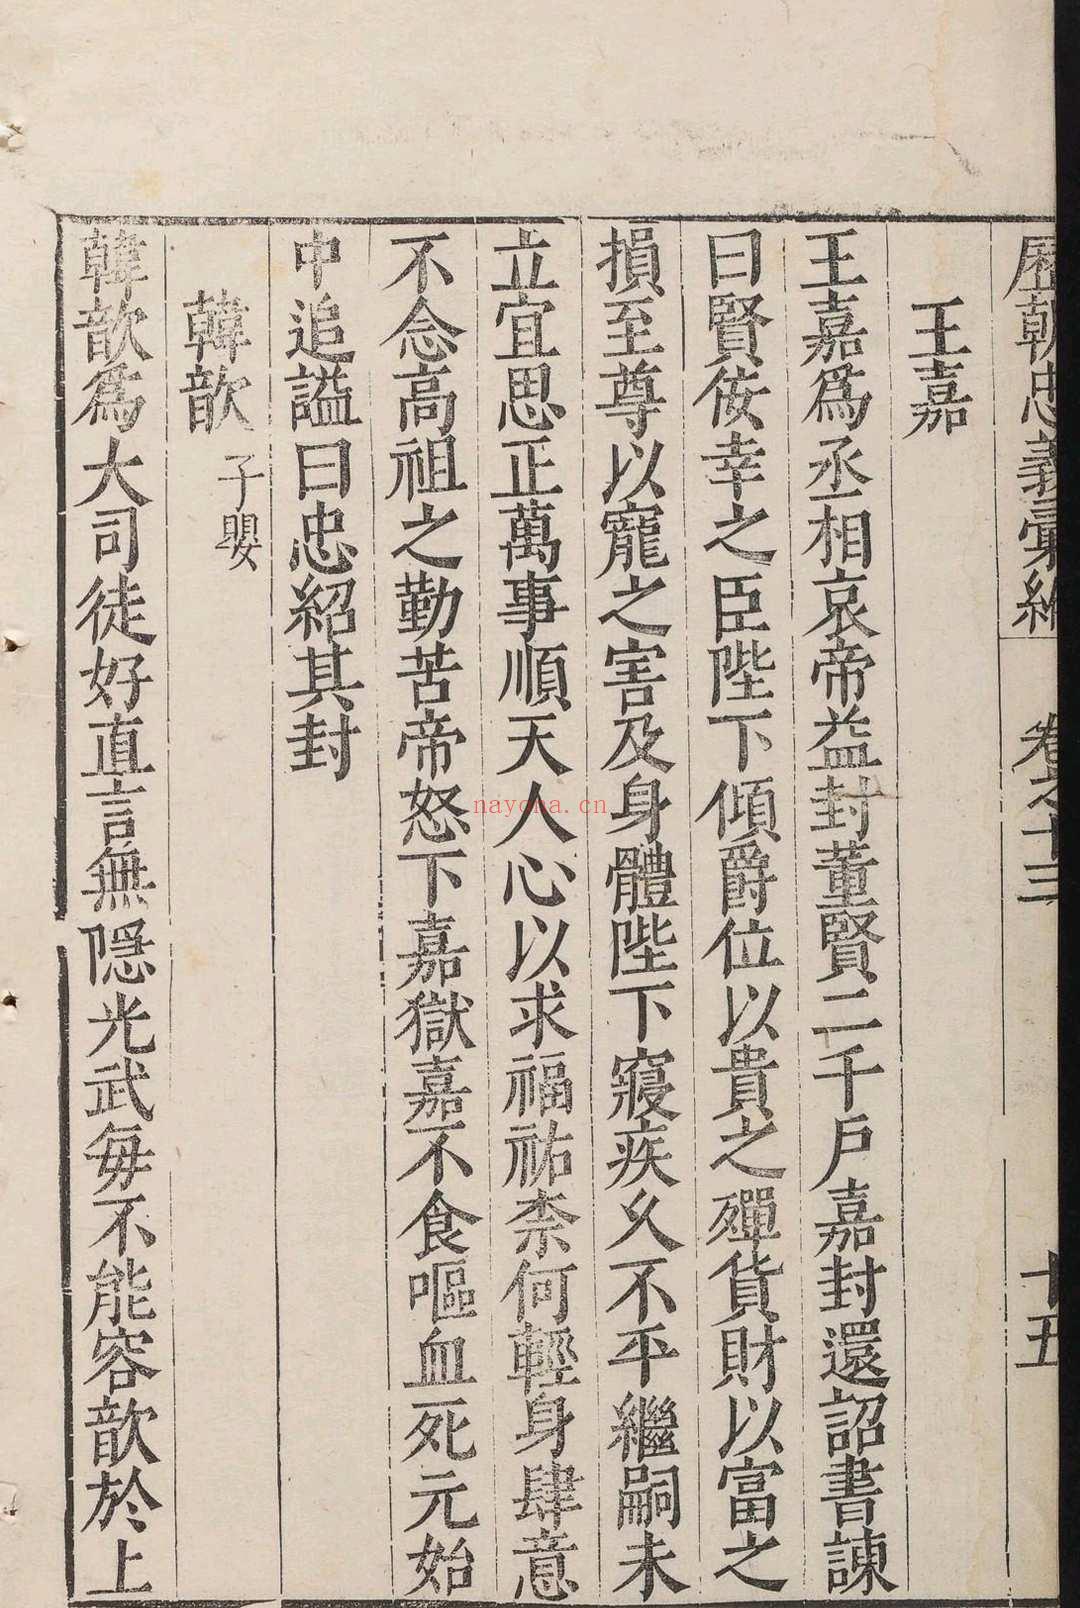 歷朝忠義彙編 卷之十三 十五
王嘉
王嘉爲丞相哀帝益封董賢二千戶嘉封還詔書諫
曰賢佞幸之臣陛下傾爵位以貴之殫貨財以富之
損至尊以寵之害及身體陛下寢疾乆不平繼嗣未
立宜思正萬事順天人心以求福祐柰何輕身肆意
不念高祖之勤苦帝怒下嘉獄嘉不食嘔血死元始
中追謚曰忠紹其封
韓歆 子嬰
韓歆爲大司徒好直言無隱光武每不能容歆於上
nayona.cn